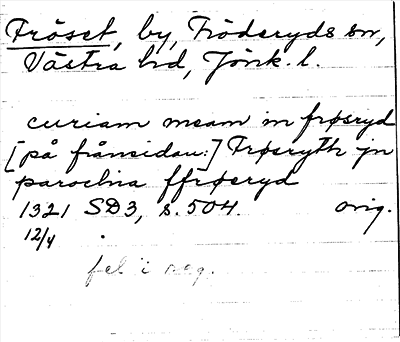 Fröset, by, Fröderyds sn,
Västra hd, Jönk. l.
curiam meam in frøsryd
[på frånsidan:] Frøsryth jn
parochia ffrøsryd
1321 SD3, s. 504. orig.
12/4
fel i reg.